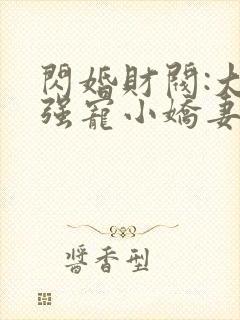 閃婚財閥:大
强寵小嬌妻
醬香型